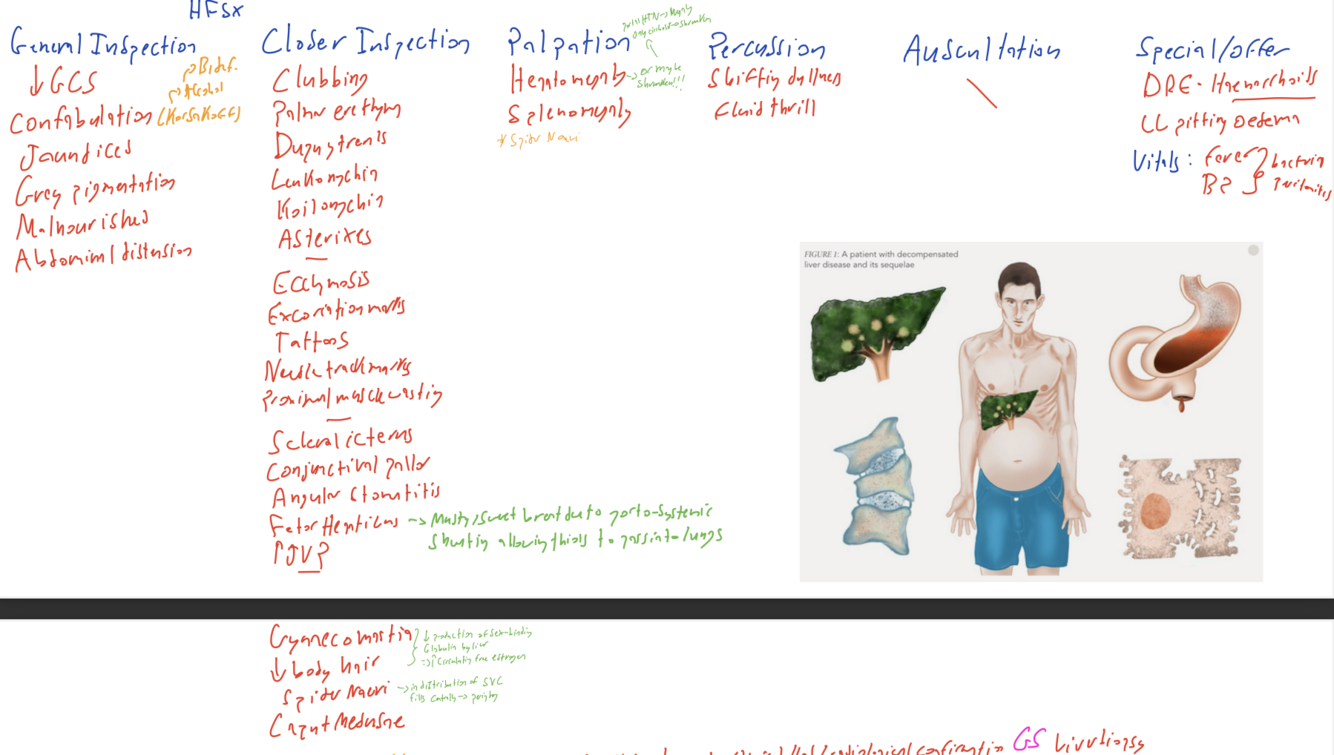 HFSx
General Inspection
↓GCS
→B1def.
→Alcohol
Confabulation (Korsakoff)
Jaundices
Grey pigmentation
Malnourished
Abdominal distension
Closer Inspection
Clubbing
Palmar erythm
Dupuytren's
Leukonychia
Koilonychia
Asterixes
Ecchymosis
Excoriation marks
Tattoos
Needle track marks
Proximal muscle wasting
Scleral icterus
Conjunctival pallor
Angular stomatitis
Fetor Hepticus → Musty/sweet breath due to porto-systemic
shunting allowing thiols to pass into lungs
↑JVP
Palpation
Hepatomegaly → or maybe
shrunken!!!
Splenomegaly
* Spider Naevi
Percussion
Shifting dullness
Fluid thrill
Auscultation
Special/offer
DRE - Haemorrhoids
LL pitting oedema
Vitals: fever } bacterial
BP } peritonitis
FIGURE 1: A patient with decompensated
liver disease and its sequelae
Gynaecomastia } ↓ production of sex-binding
Globulin by liver
=> ↑ circulating free estrogen
↓ body hair
Spider Naevi → in distribution of SVC
fills centrally → periphery
Caput Medusae
radiological confirmation GS liver biopsy